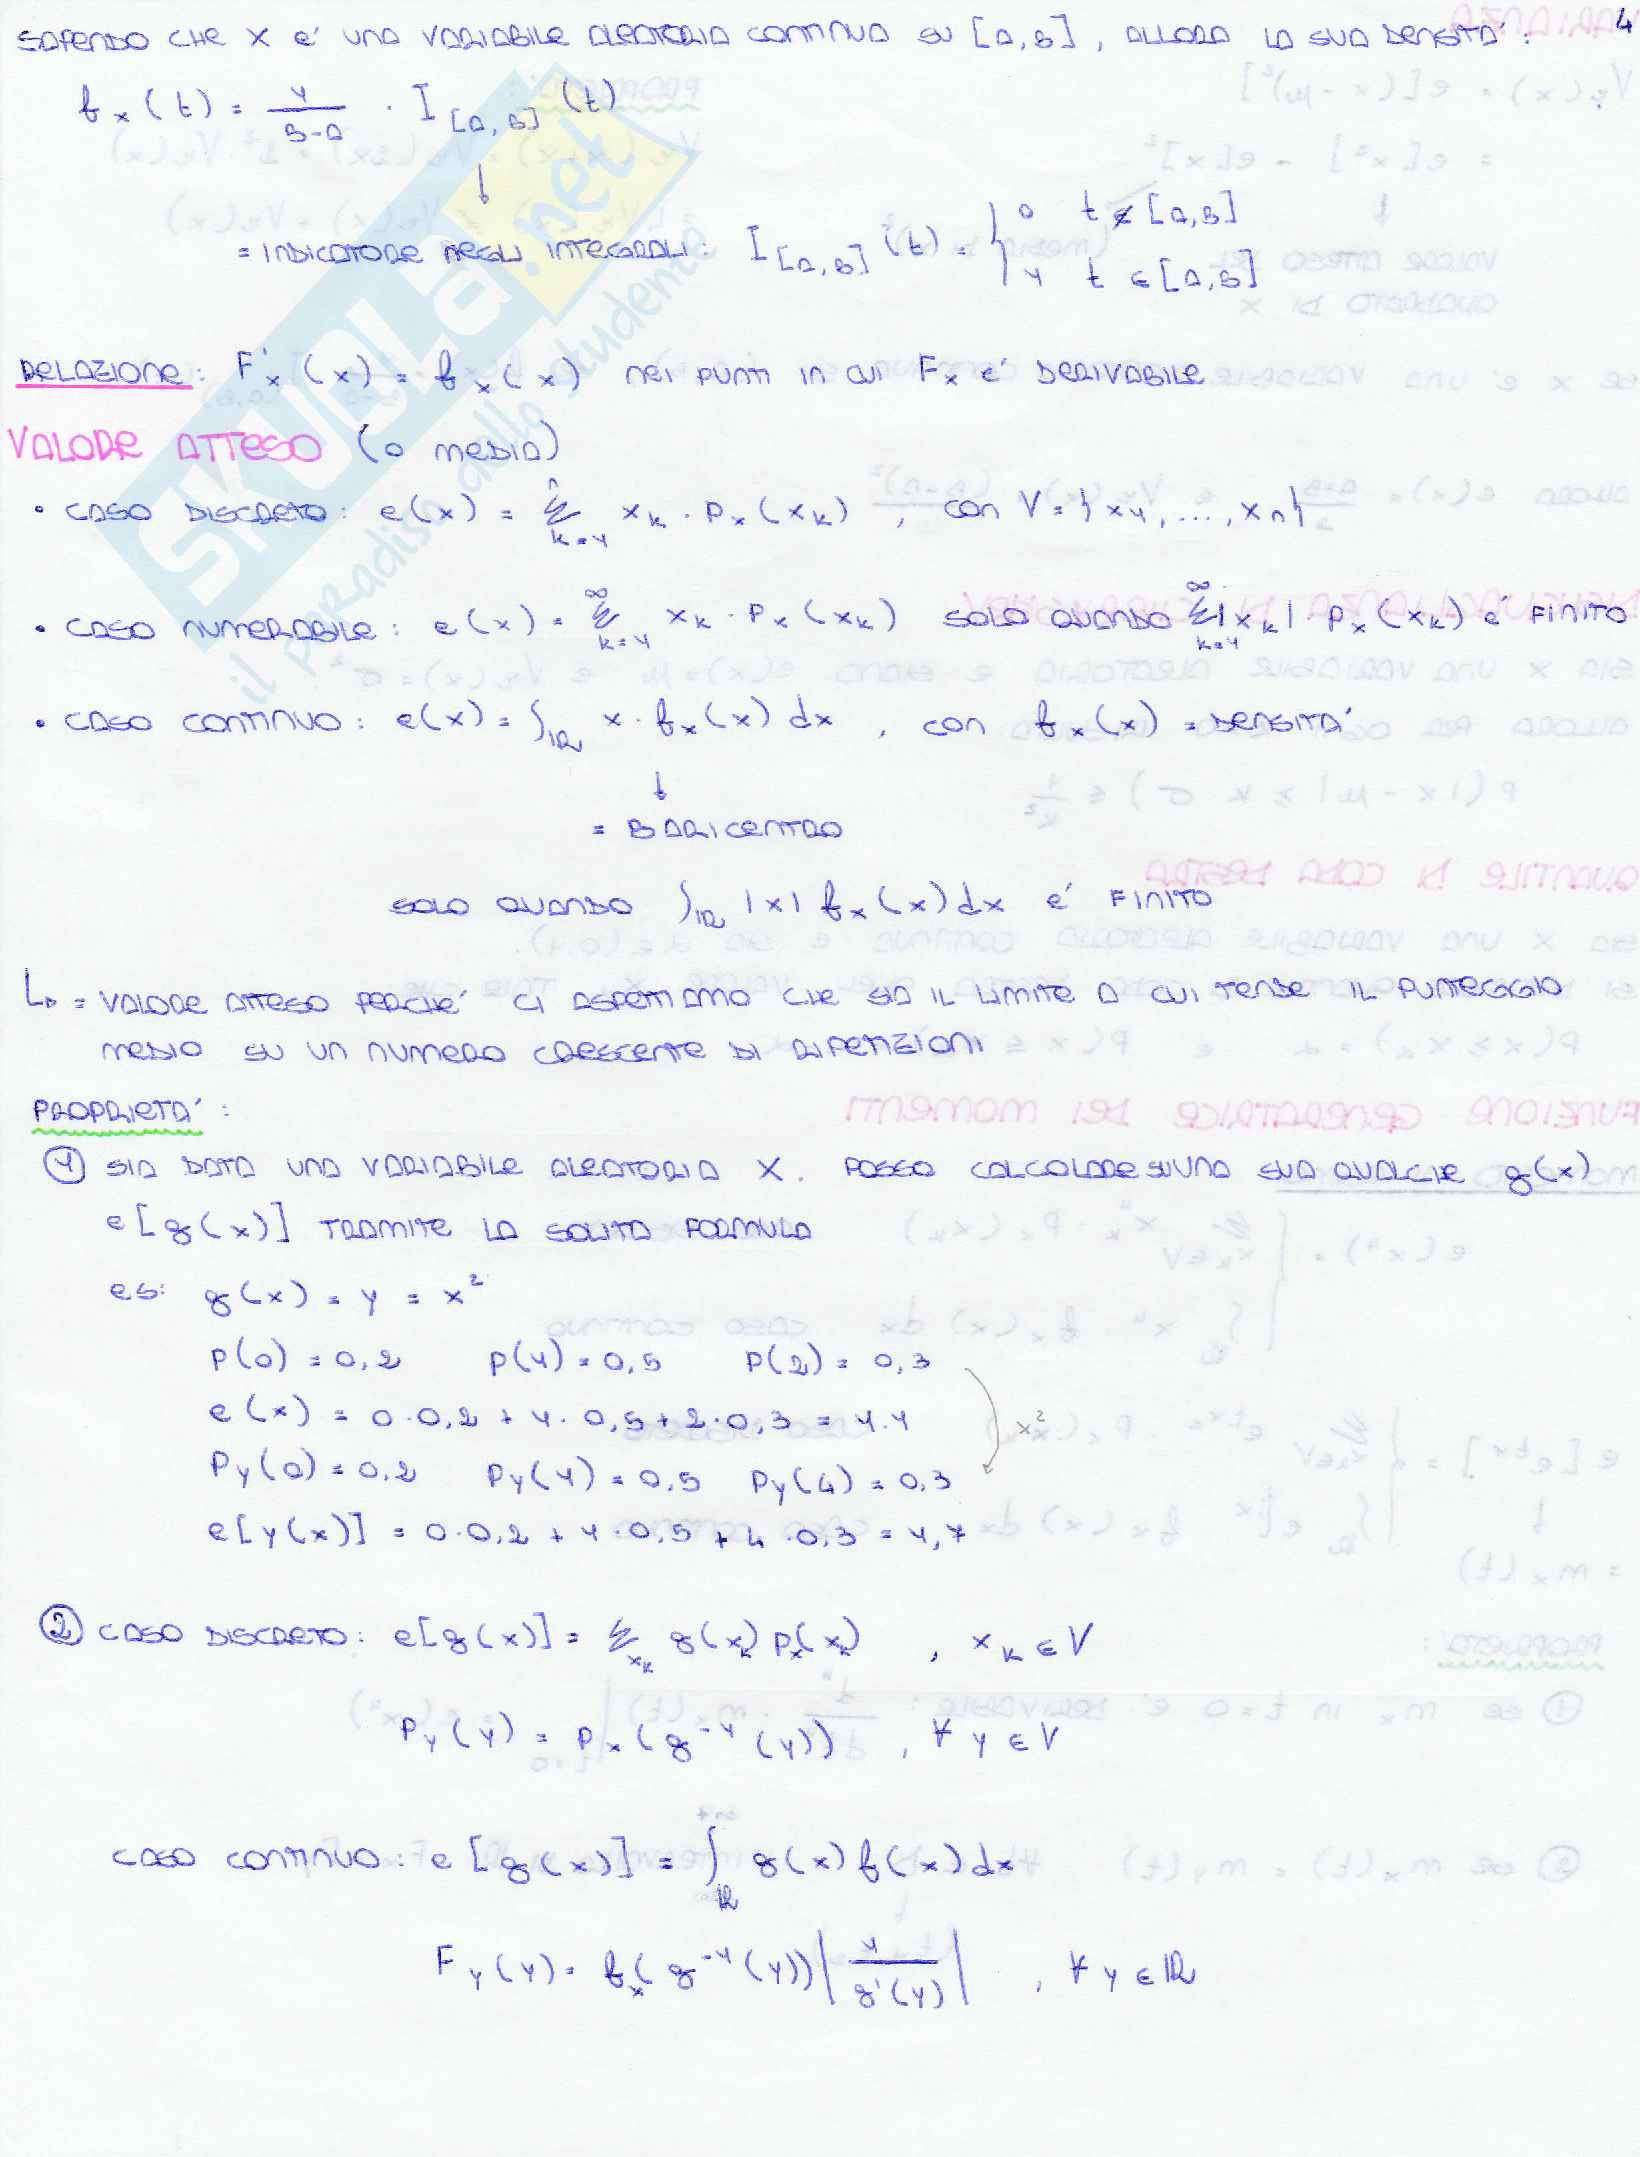 4
SAPENDO CHE X E' UNA VARIABILE ALEATORIA CONTINUA SU [A,B], ALLORA LA SUA DENSITA':
f_X(t) = 1/(B-A) · I_[A,B](t)
↓
= INDICATORE NEGLI INTEGRALI: I_[A,B](t) = { 0 t ∉ [A,B]
1 t ∈ [A,B]
RELAZIONE: F'_X(x) = f_X(x) NEI PUNTI IN CUI F_X E' DERIVABILE
VALORE ATTESO (O MEDIA)
• CASO DISCRETO: E(X) = Σ_{k=1}^{n} x_k · P_X(x_k) , CON V = {x_1, ..., x_n}
• CASO NUMERABILE: E(X) = Σ_{k=1}^{∞} x_k · P_X(x_k) SOLO QUANDO Σ_{k=1}^{∞} |x_k| · P_X(x_k) E' FINITO
• CASO CONTINUO: E(X) = ∫_ℝ x · f_X(x) dx , CON f_X(x) = DENSITA'
↓
= BARICENTRO
SOLO QUANDO ∫_ℝ |x| f_X(x) dx E' FINITO
↳ = VALORE ATTESO PERCHE' CI ASPETTIAMO CHE SIA IL LIMITE A CUI TENDE IL PUNTEGGIO
MEDIO SU UN NUMERO CRESCENTE DI RIPETIZIONI
PROPRIETA':
① SIA DATA UNA VARIABILE ALEATORIA X. POSSO CALCOLARE SU UNA SUA QUALCHE g(x)
E[g(x)] TRAMITE LA SOLITA FORMULA
ES: g(x) = y = x²
P(0) = 0,2 P(1) = 0,5 P(2) = 0,3
E(X) = 0·0,2 + 1·0,5 + 2·0,3 = 1.1
x²
P_Y(0) = 0,2 P_Y(1) = 0,5 P_Y(4) = 0,3
E[Y(X)] = 0·0,2 + 1·0,5 + 4·0,3 = 1,7
② CASO DISCRETO: E[g(x)] = Σ_{x_k} g(x_k) P_X(x_k) , x_k ∈ V
P_Y(y) = P_X(g⁻¹(y)) , ∀ y ∈ V
CASO CONTINUO: E[g(x)] = ∫_ℝ g(x) f(x) dx
F_Y(y) = f_X(g⁻¹(y)) |1/g'(y)| , ∀ y ∈ ℝ
SKUOLA.net
il paradiso dello studente